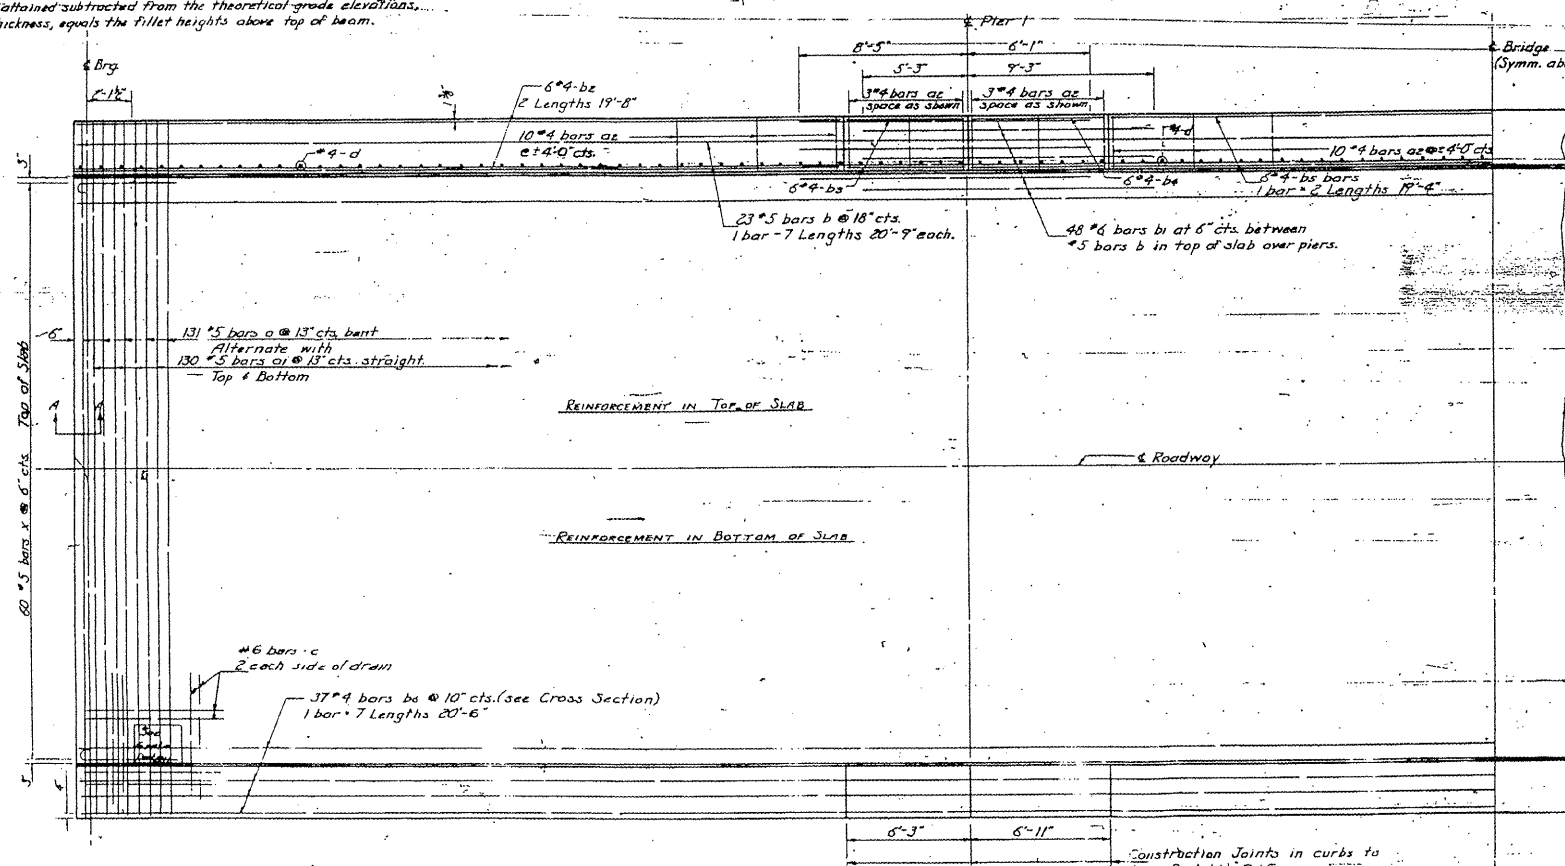 attained subtracted from the theoretical grade elevations,
thickness, equals the fillet heights above top of beam.
℄ Pier 1
℄ Brg
℄ Bridge
(Symm. ab
8'-5"
6'-1"
5'-3"
9'-3"
2'-1½"
6 #4-b2
2 Lengths 19'-8"
3 #4 bars a2
space as shown
3 #4 bars a2
space as shown
10 #4 bars a2
@ ±4'-0" cts.
#4-d
#4-d
10 #4 bars a2 @ ±4'-0" cts
5"
6 #4-b3
6 #4-b4
6 #4-b5 bars
1 bar = 2 Lengths 19'-4"
23 #5 bars b @ 18" cts.
1 bar - 7 Lengths 20'-9" each.
48 #6 bars b1 at 6" cts. between
#5 bars b in top of slab over piers.
6"
131 #5 bars a @ 13" cts. bent
Alternate with
130 #5 bars a1 @ 13" cts. straight.
Top & Bottom
A
A
REINFORCEMENT IN TOP OF SLAB
℄ Roadway
60 #5 bars x @ 6" cts. Top of Slab
REINFORCEMENT IN BOTTOM OF SLAB
#6 bars - c
2 each side of drain
37 #4 bars b6 @ 10" cts. (see Cross Section)
1 bar = 7 Lengths 20'-6"
6'-3"
6'-11"
Construction Joints in curbs to